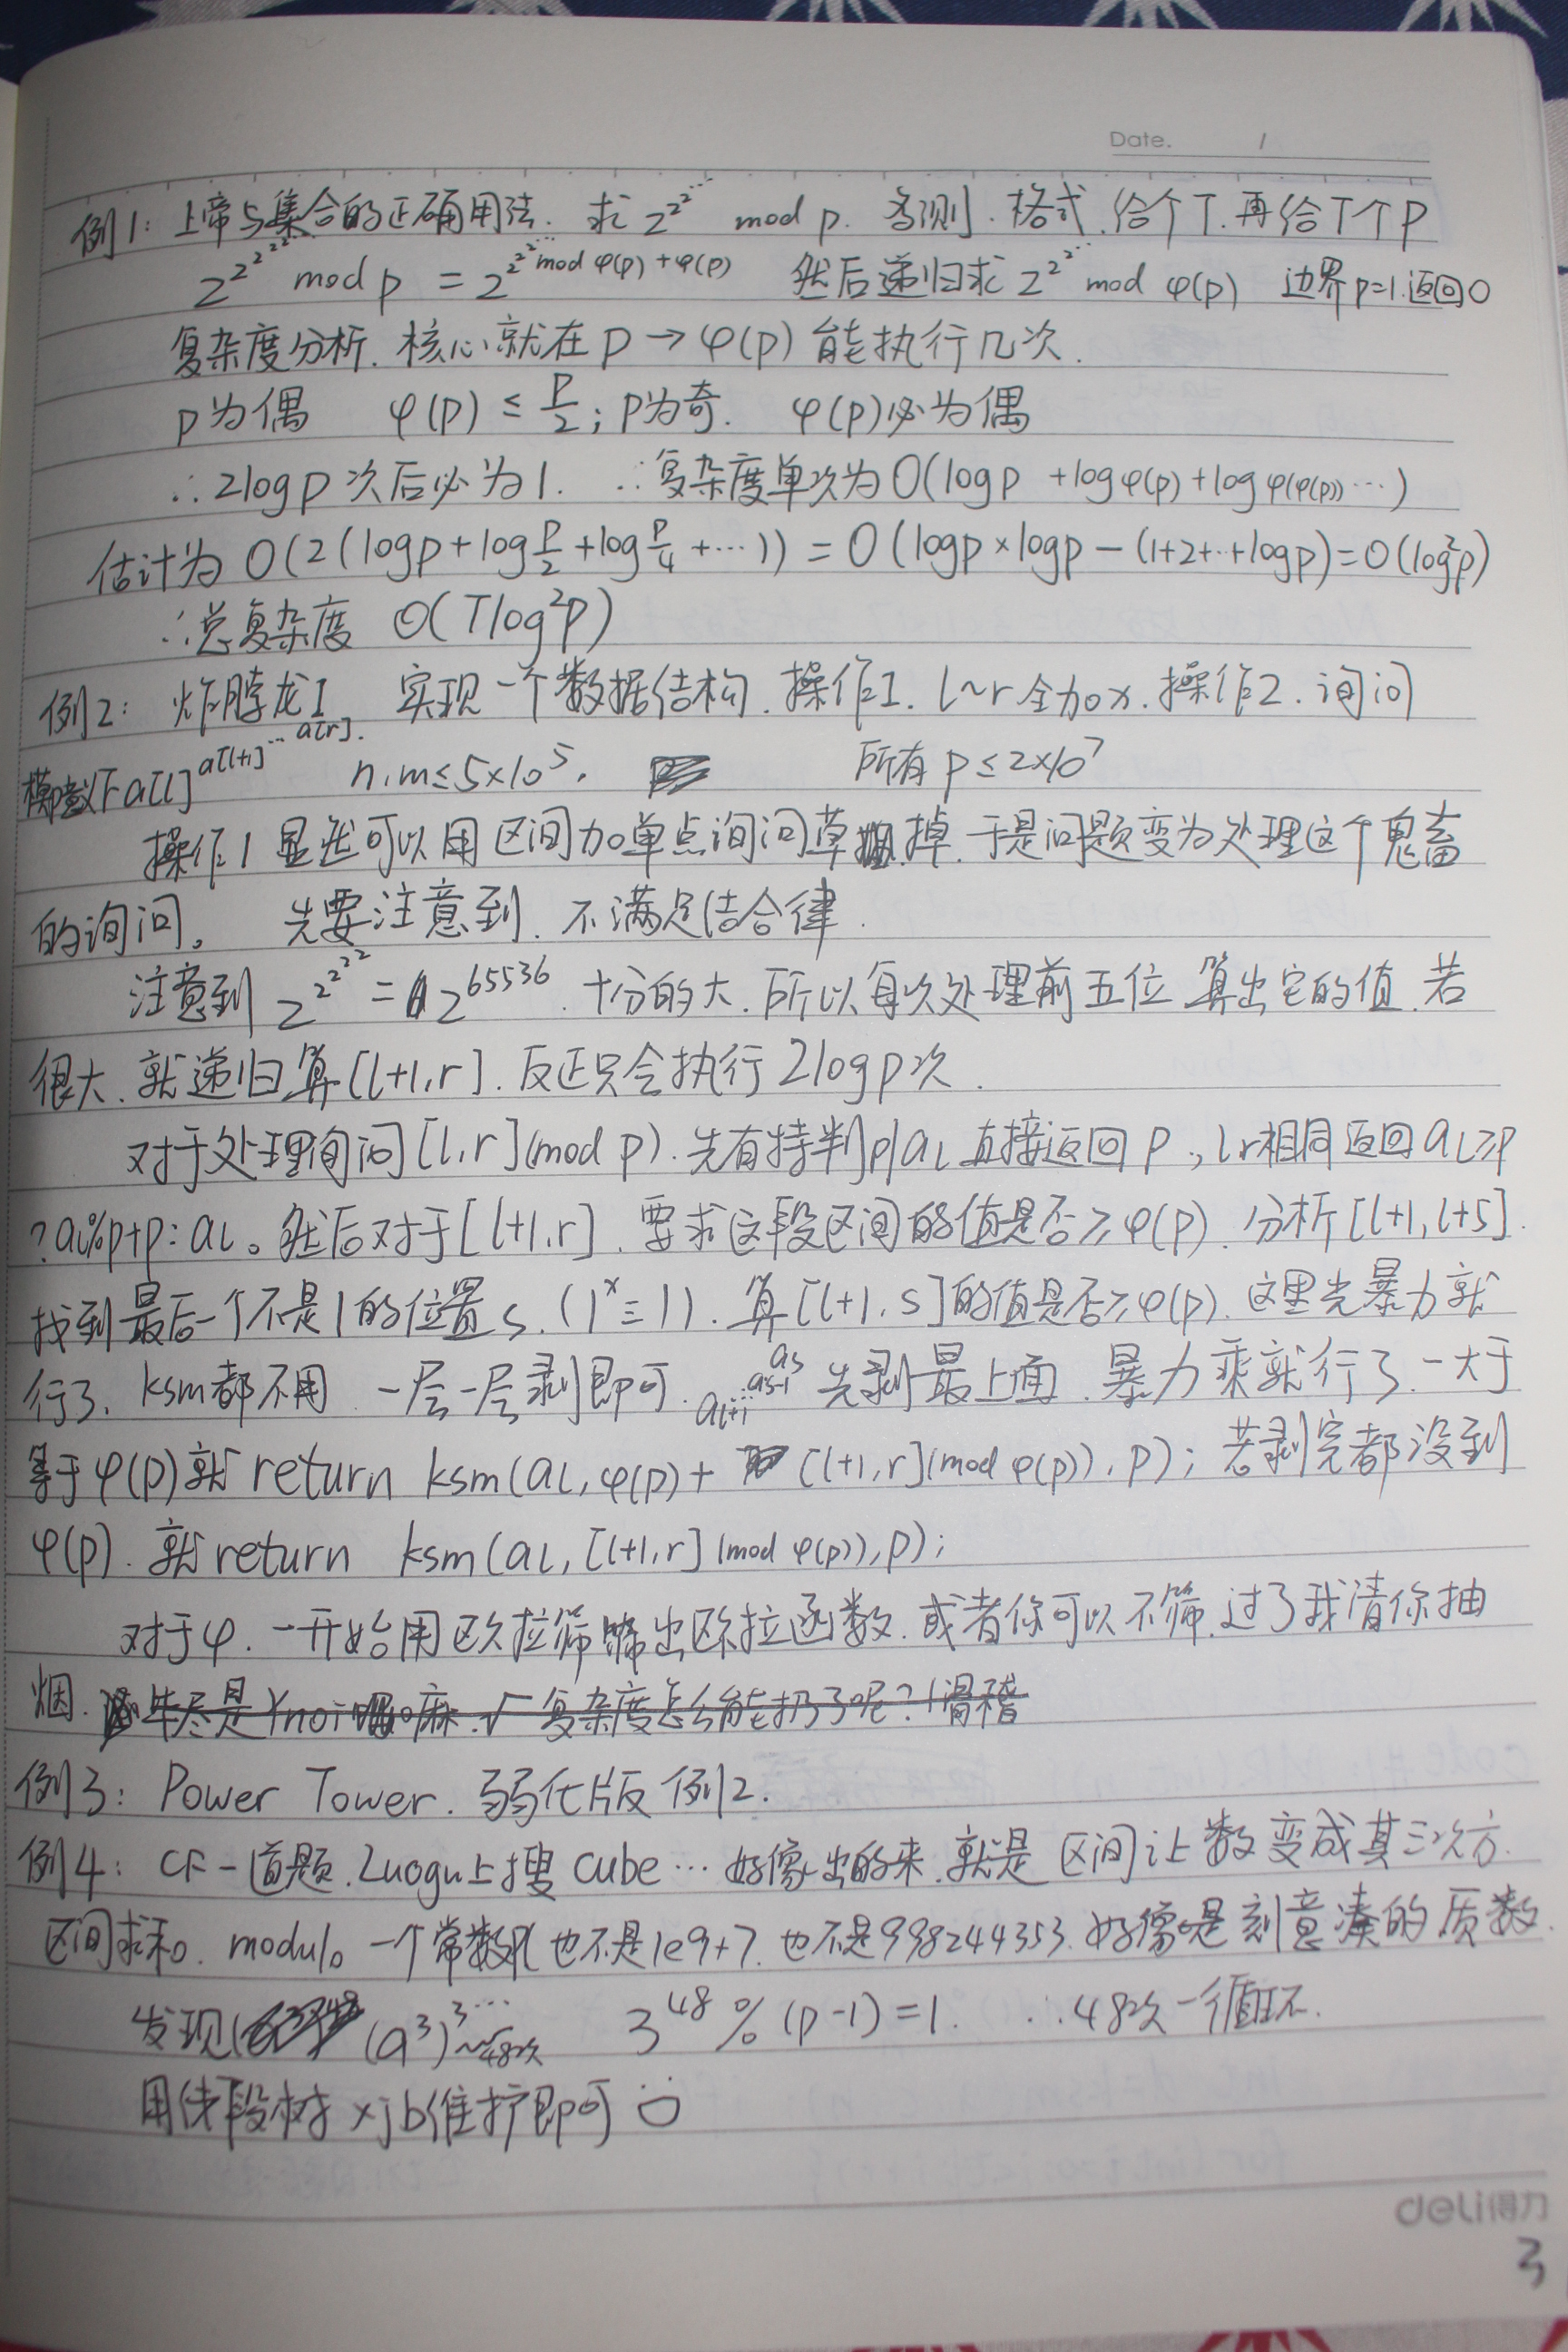 Date. /
例1: 上帝与集合的正确用法. 求 2^2^2^… mod p. 多测. 格式.给个T.再给T个P
2^2^2^2^… mod p = 2^(2^2^… mod φ(p) + φ(p)) 然后递归求 2^2^2^… mod φ(p) 边界p=1.返回0
复杂度分析. 核心就在 p → φ(p) 能执行几次.
p为偶 φ(p) ≤ p/2 ; p为奇. φ(p)必为偶
∴2logp 次后必为1. ∴复杂度单次为O(logp +logφ(p)+logφ(φ(p))…)
估计为 O(2(logp+log p/2 +log p/4 +…)) = O(logp×logp-(1+2+…+logp)=O(log²p)
∴总复杂度 O(Tlog²p)
例2: 炸脖龙I. 实现一个数据结构. 操作1. l~r 全加x. 操作2. 询问
模意义下a[l]^a[l+1]^…a[r]. n,m≤5×10^5. 所有 p≤2×10^7
操作1 显然可以用区间加单点询问草掉. 于是问题变为处理这个鬼畜
的询问。 先要注意到. 不满足结合律.
注意到 2^2^2^2^2 = 2^65536. 十分的大. 所以每次处理前五位 算出它的值. 若
很大. 就递归算[l+1,r]. 反正只会执行 2logp次.
对于处理询问[l,r](mod p). 先有特判p|al 直接返回 p , lr相同返回 al≥p
?al%p+p:al。然后对于[l+1,r]. 要求这段区间的值是否≥φ(p). 分析[l+1,l+5].
找到最后一个不是1的位置s. (1^x≡1). 算[l+1,s]的值是否≥φ(p). 这里光暴力就
行了. ksm都不用 一层一层剥即可. al+1^…as-1^as 先剥最上面. 暴力乘就行了. 一大于
等于φ(p)就return ksm(al,φ(p)+ [l+1,r](mod φ(p)),p); 若剥完都没到
φ(p). 就return ksm(al,[l+1,r](mod φ(p)),p);
对于φ. 一开始用欧拉筛筛出欧拉函数. 或者你可以不筛.过了我请你抽
烟. 复杂度怎么能扔了呢?(滑稽
例3: Power Tower. 弱化版例2.
例4: CF一道题. Luogu上搜 cube … 好像出的来. 就是 区间让数变成其三次方.
区间求和. modulo 一个常数 也不是1e9+7. 也不是998244353. 好像是刻意凑的质数.
发现( (a^3)^3^…~48次 3^48 % (p-1)=1. ∴48次一循环.
用线段树 xjb维护即可
deli得力
3